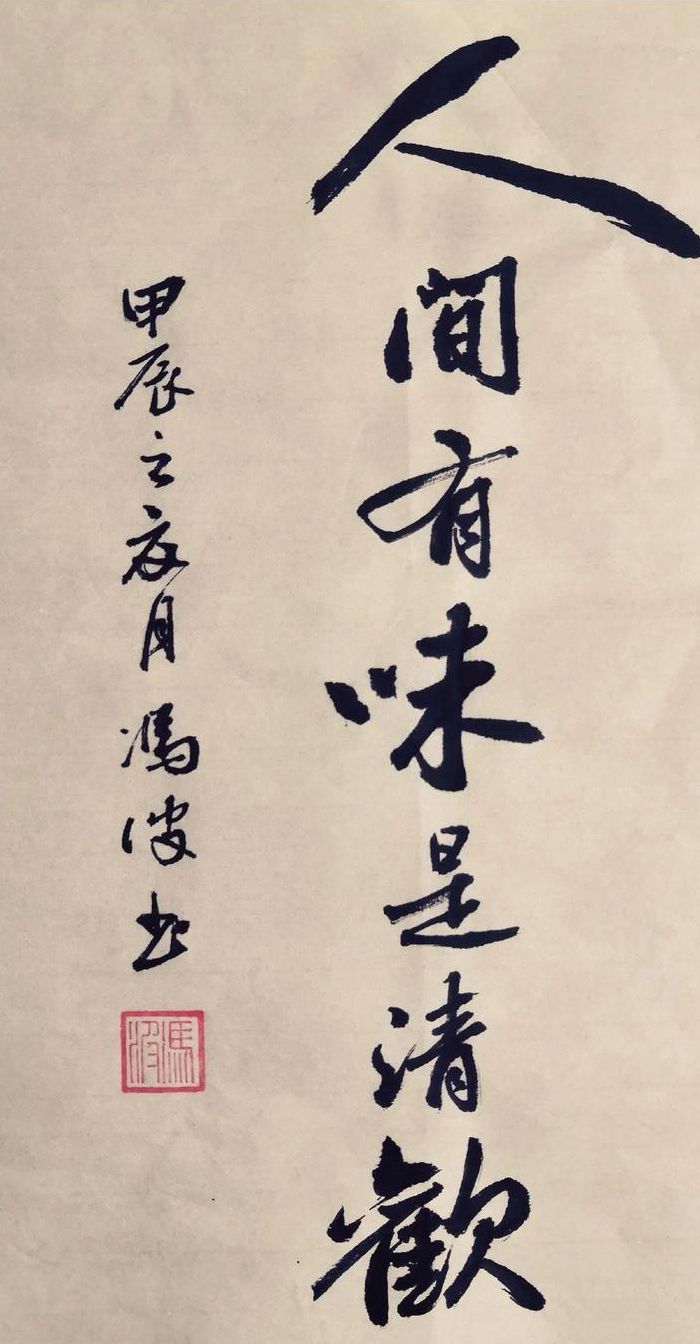 人間有味是清歡
甲辰之夏月馮波書
馮波